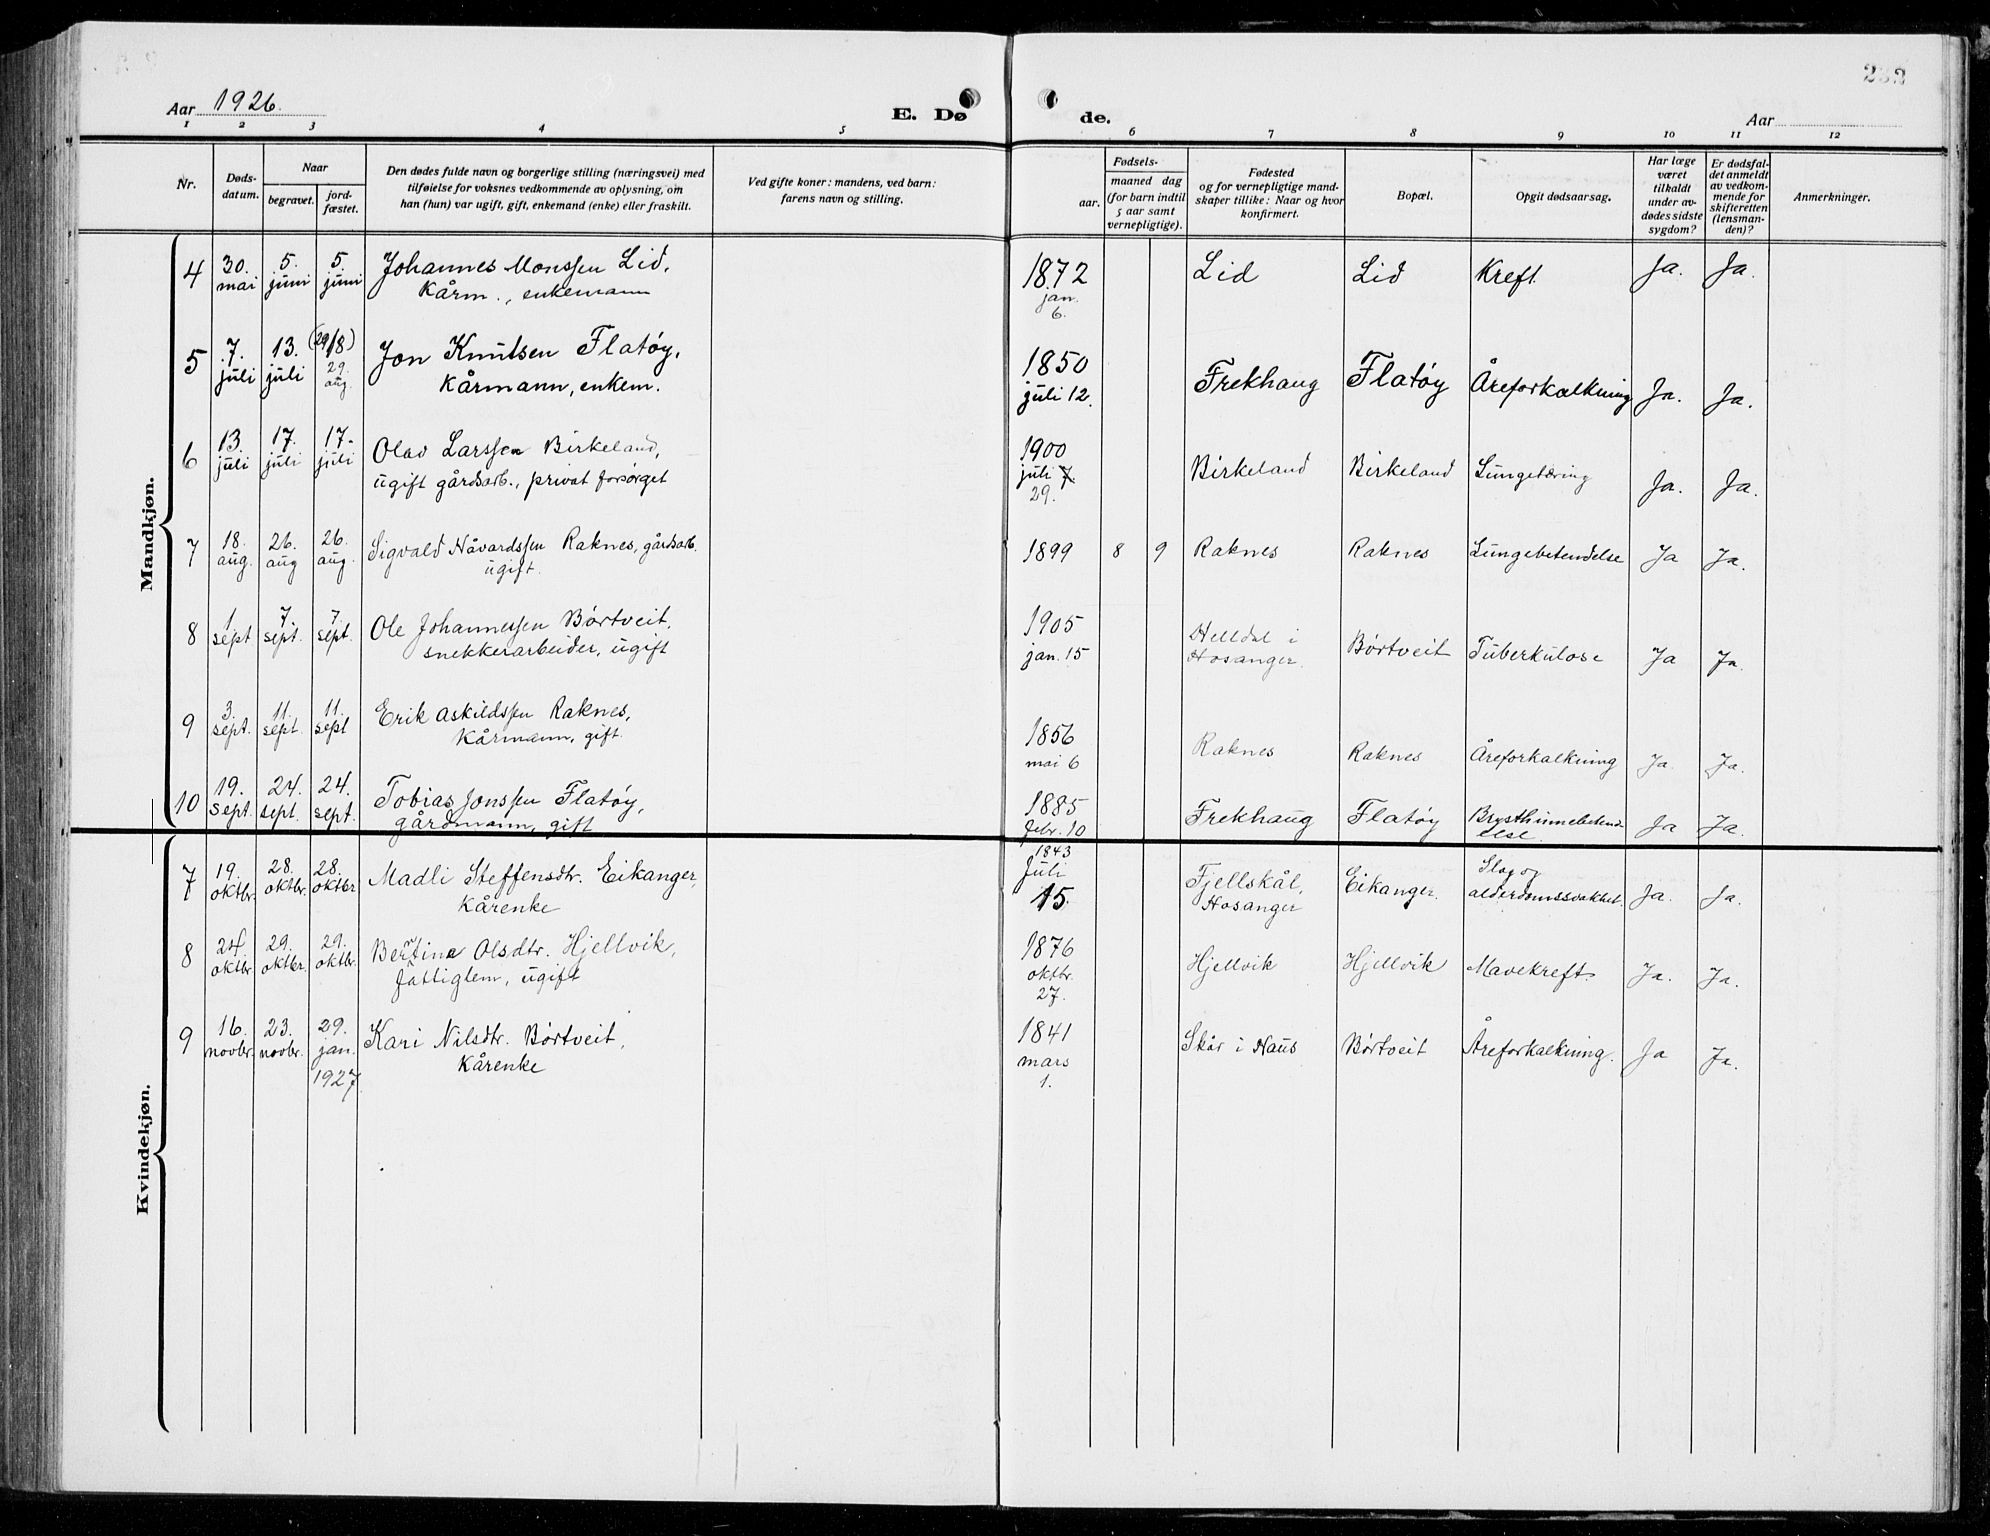 232
Aar 1926.
E. Dø
de.
Aar
1 2 3 4 5 6 7 8 9 10 11 12
Nr.
Døds-
datum.
Naar
begravet.
jord-
fæstet.
Den dødes fulde navn og borgerlige stilling (næringsvei) med
tilføielse for voksnes vedkommende av oplysning, om
han (hun) var ugift, gift, enkemand (enke) eller fraskilt.
Ved gifte koner: mandens, ved barn:
farens navn og stilling.
Fødsels-
aar.
maaned dag
(for barn indtil
5 aar samt
vernepligtige).
Fødested
og for vernepligtige mand-
skaper tillike: Naar og hvor
konfirmert.
Bopæl.
Opgit dødsaarsag.
Har læge
været
tilkaldt
under av-
dødes sidste
sygdom?
Er dødsfal-
det anmeldt
av vedkom-
mende for
skifteretten
(lensman-
den)?
Anmerkninger.
Mandkjøn.
4 30. mai 5. juni 5. juni Johannes Monssen Lid,
Kårm., enkemann
1872 jan. 6. Lid Lid Kreft. Ja. Ja.
5 7. juli 13. juli (29/8) 29. aug. Jon Knutsen Flatøy,
Kårmann, enkem.
1850 juli 12. Frekhaug Flatøy Åreforkalkning Ja. Ja.
6 13. juli 17. juli 17. juli Olav Larssen Birkeland,
ugift gårdsarb., privat forsørget
1900 juli 7. 29. Birkeland Birkeland Lungetæring Ja. Ja.
7 18. aug. 26. aug 26. aug. Sigvald Håvardssen Raknes, gårdsarb.
ugift.
1899 8 9 Raknes Raknes Lungebetendelse Ja Ja.
8 1 sept 7. sept. 7. sept. Ole Johannessen Børtveit,
snekkerarbeider, ugift
1905 jan. 15 Helldal i Hosanger. Børtveit Tuberkulose Ja Ja.
9 3. sept. 11. sept. 11. sept Erik Askildssen Raknes,
Kårmann, gift.
1856 mai 6 Raknes Raknes Åreforkalkning Ja. Ja.
10 19. sept. 24. sept. 24. sept. Tobias Jonssen Flatøy,
gårdmann, gift
1885 febr. 10 Frekhaug Flatøy Brysthinnebetend-
else Ja Ja.
Kvindekjøn.
7 19. oktbr. 28. oktbr. 28. oktbr Madli Steffensdtr. Eikanger,
Kårenke
1843 Juli 15. Fjellskål, Hosanger Eikanger. Slag og
alderdomssvakhet. Ja. Ja.
8 24. oktbr. 29. oktbr. 29. oktbr. Berntine Olsdtr. Hjellvik,
fattiglem, ugift
1876 oktbr. 27. Hjellvik Hjellvik Mavekreft. Ja. Ja.
9 16. novbr. 23. novbr. 29. jan. 1927. Kari Nilsdtr. Børtveit,
Kårenke
1841 mars 1. Skår i Haus Børtveit Åreforkalkning. Ja Ja.